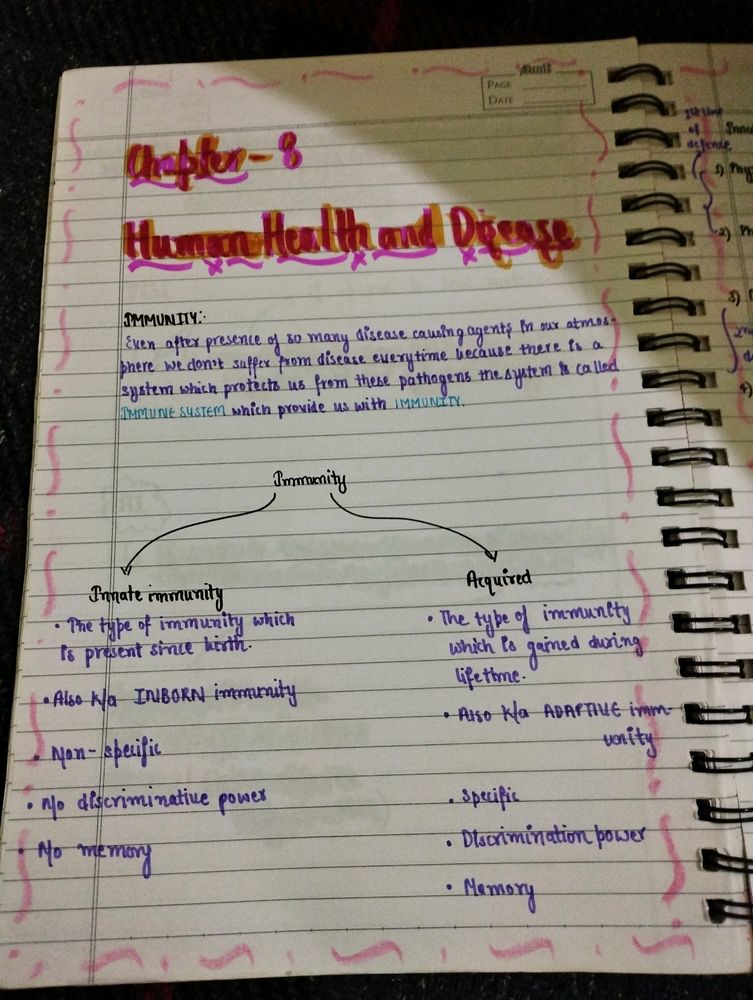 Sunil
PAGE
DATE
Chapter - 8
Human Health and Disease
IMMUNITY:-
Even after presence of so many disease causing agents in our atmos-
phere we don't suffer from disease everytime because there is a
system which protects us from these pathogens the system is called
IMMUNE SYSTEM which provide us with IMMUNITY.
Immunity
Innate immunity
• The type of immunity which
is present since birth.
• Also k/a INBORN immunity
• Non-specific
• No discriminative power
• No memory
Acquired
• The type of immunity
which is gained during
lifetime.
• Also k/a ADAPTIVE imm-
unity
• Specific
• Discrimination power
• Memory
1st line
of
defense
1) Phy
2) Ph
3)
4)